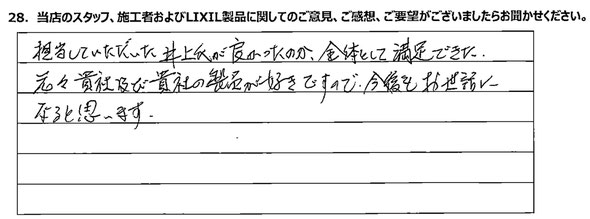 28. 当店のスタッフ、施工者およびLIXIL製品に関してのご意見、ご感想、ご要望がございましたらお聞かせください。
担当していただいた井上氏が良かったのか、全体として満足できた.
元々貴社及び貴社の製品が好きですので、今後もお世話に
なると思います.